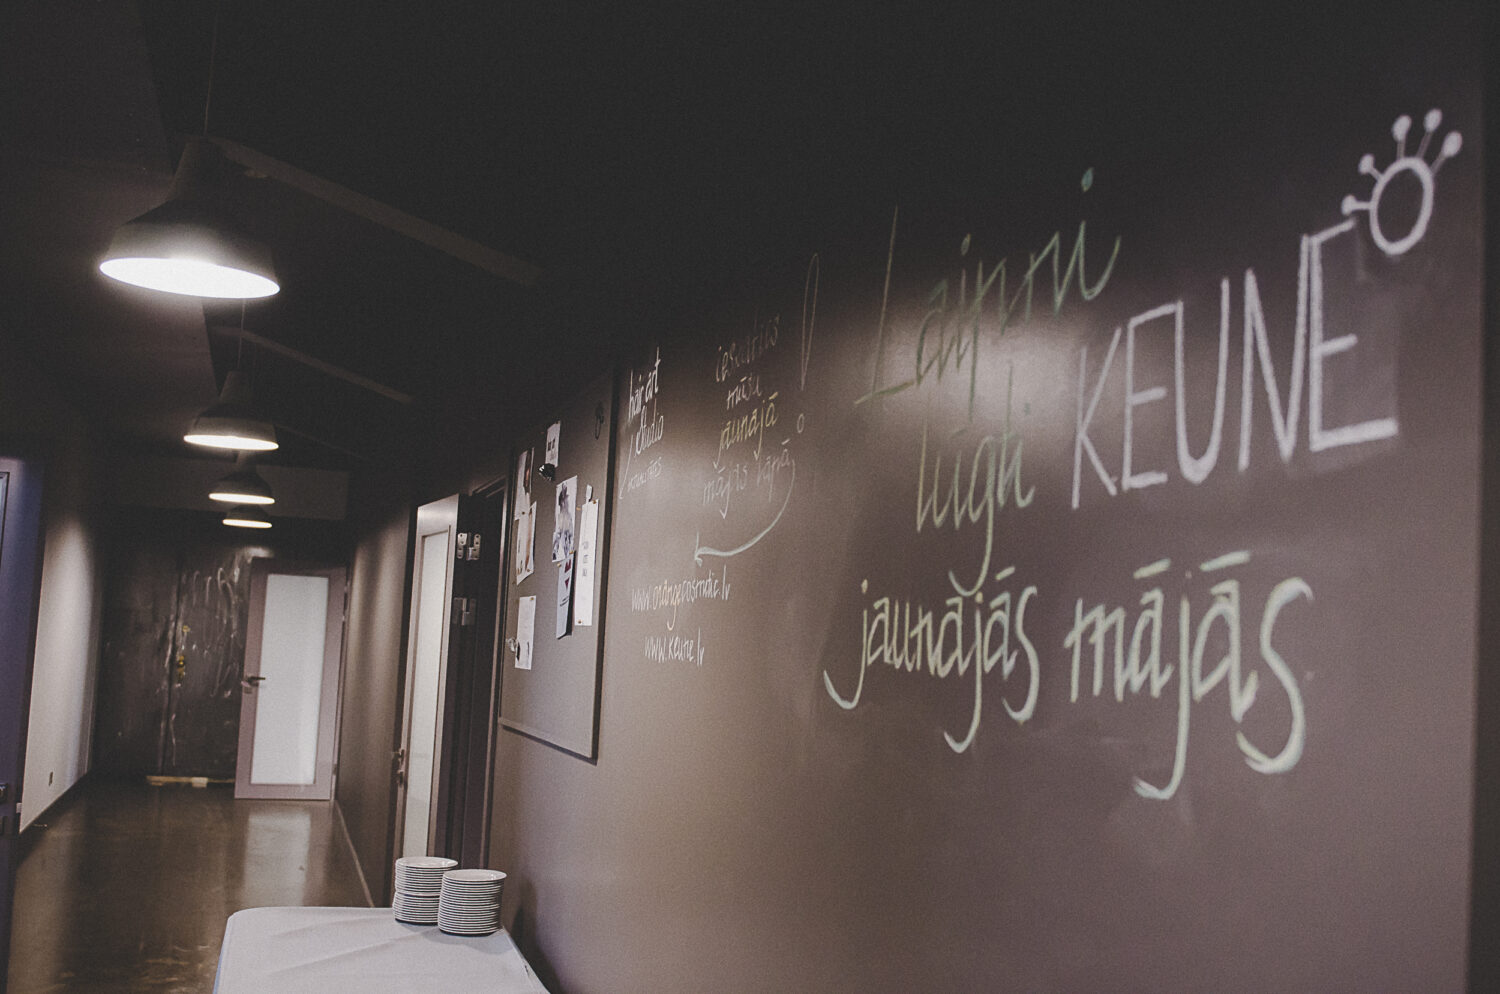 hair art
studio
ieskaties
mūsu
jaunajā
mājas lapā!
www.orangecosmetic.lv
www.keune.lv
Laipni
lūgti KEUNE
jaunajās mājās